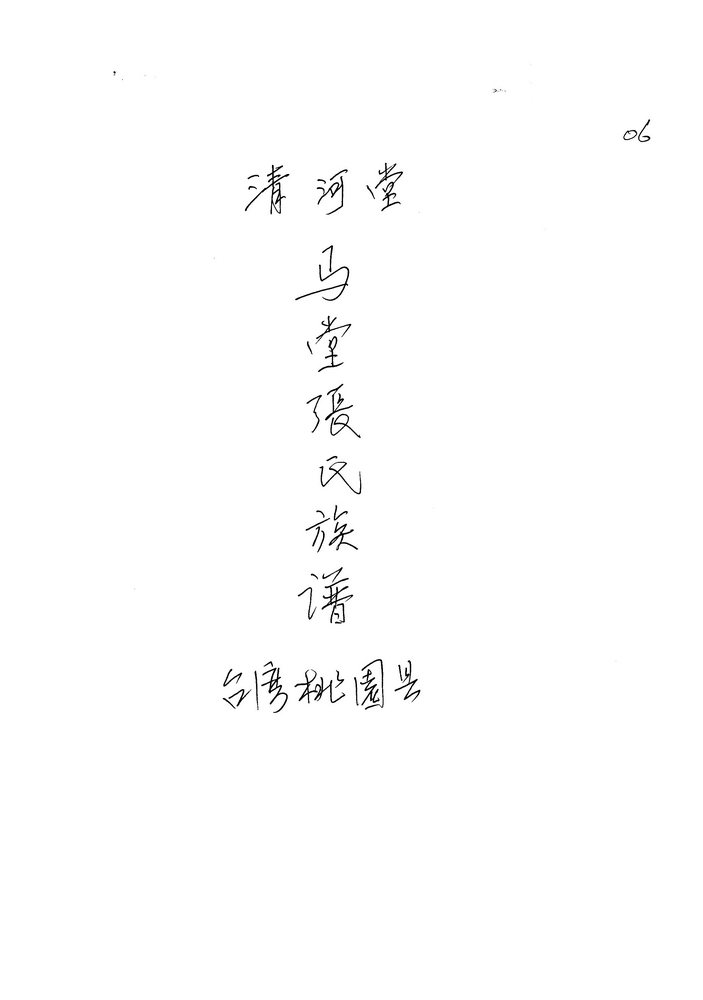 06
清河堂
马堂張氏族谱
台湾桃園县